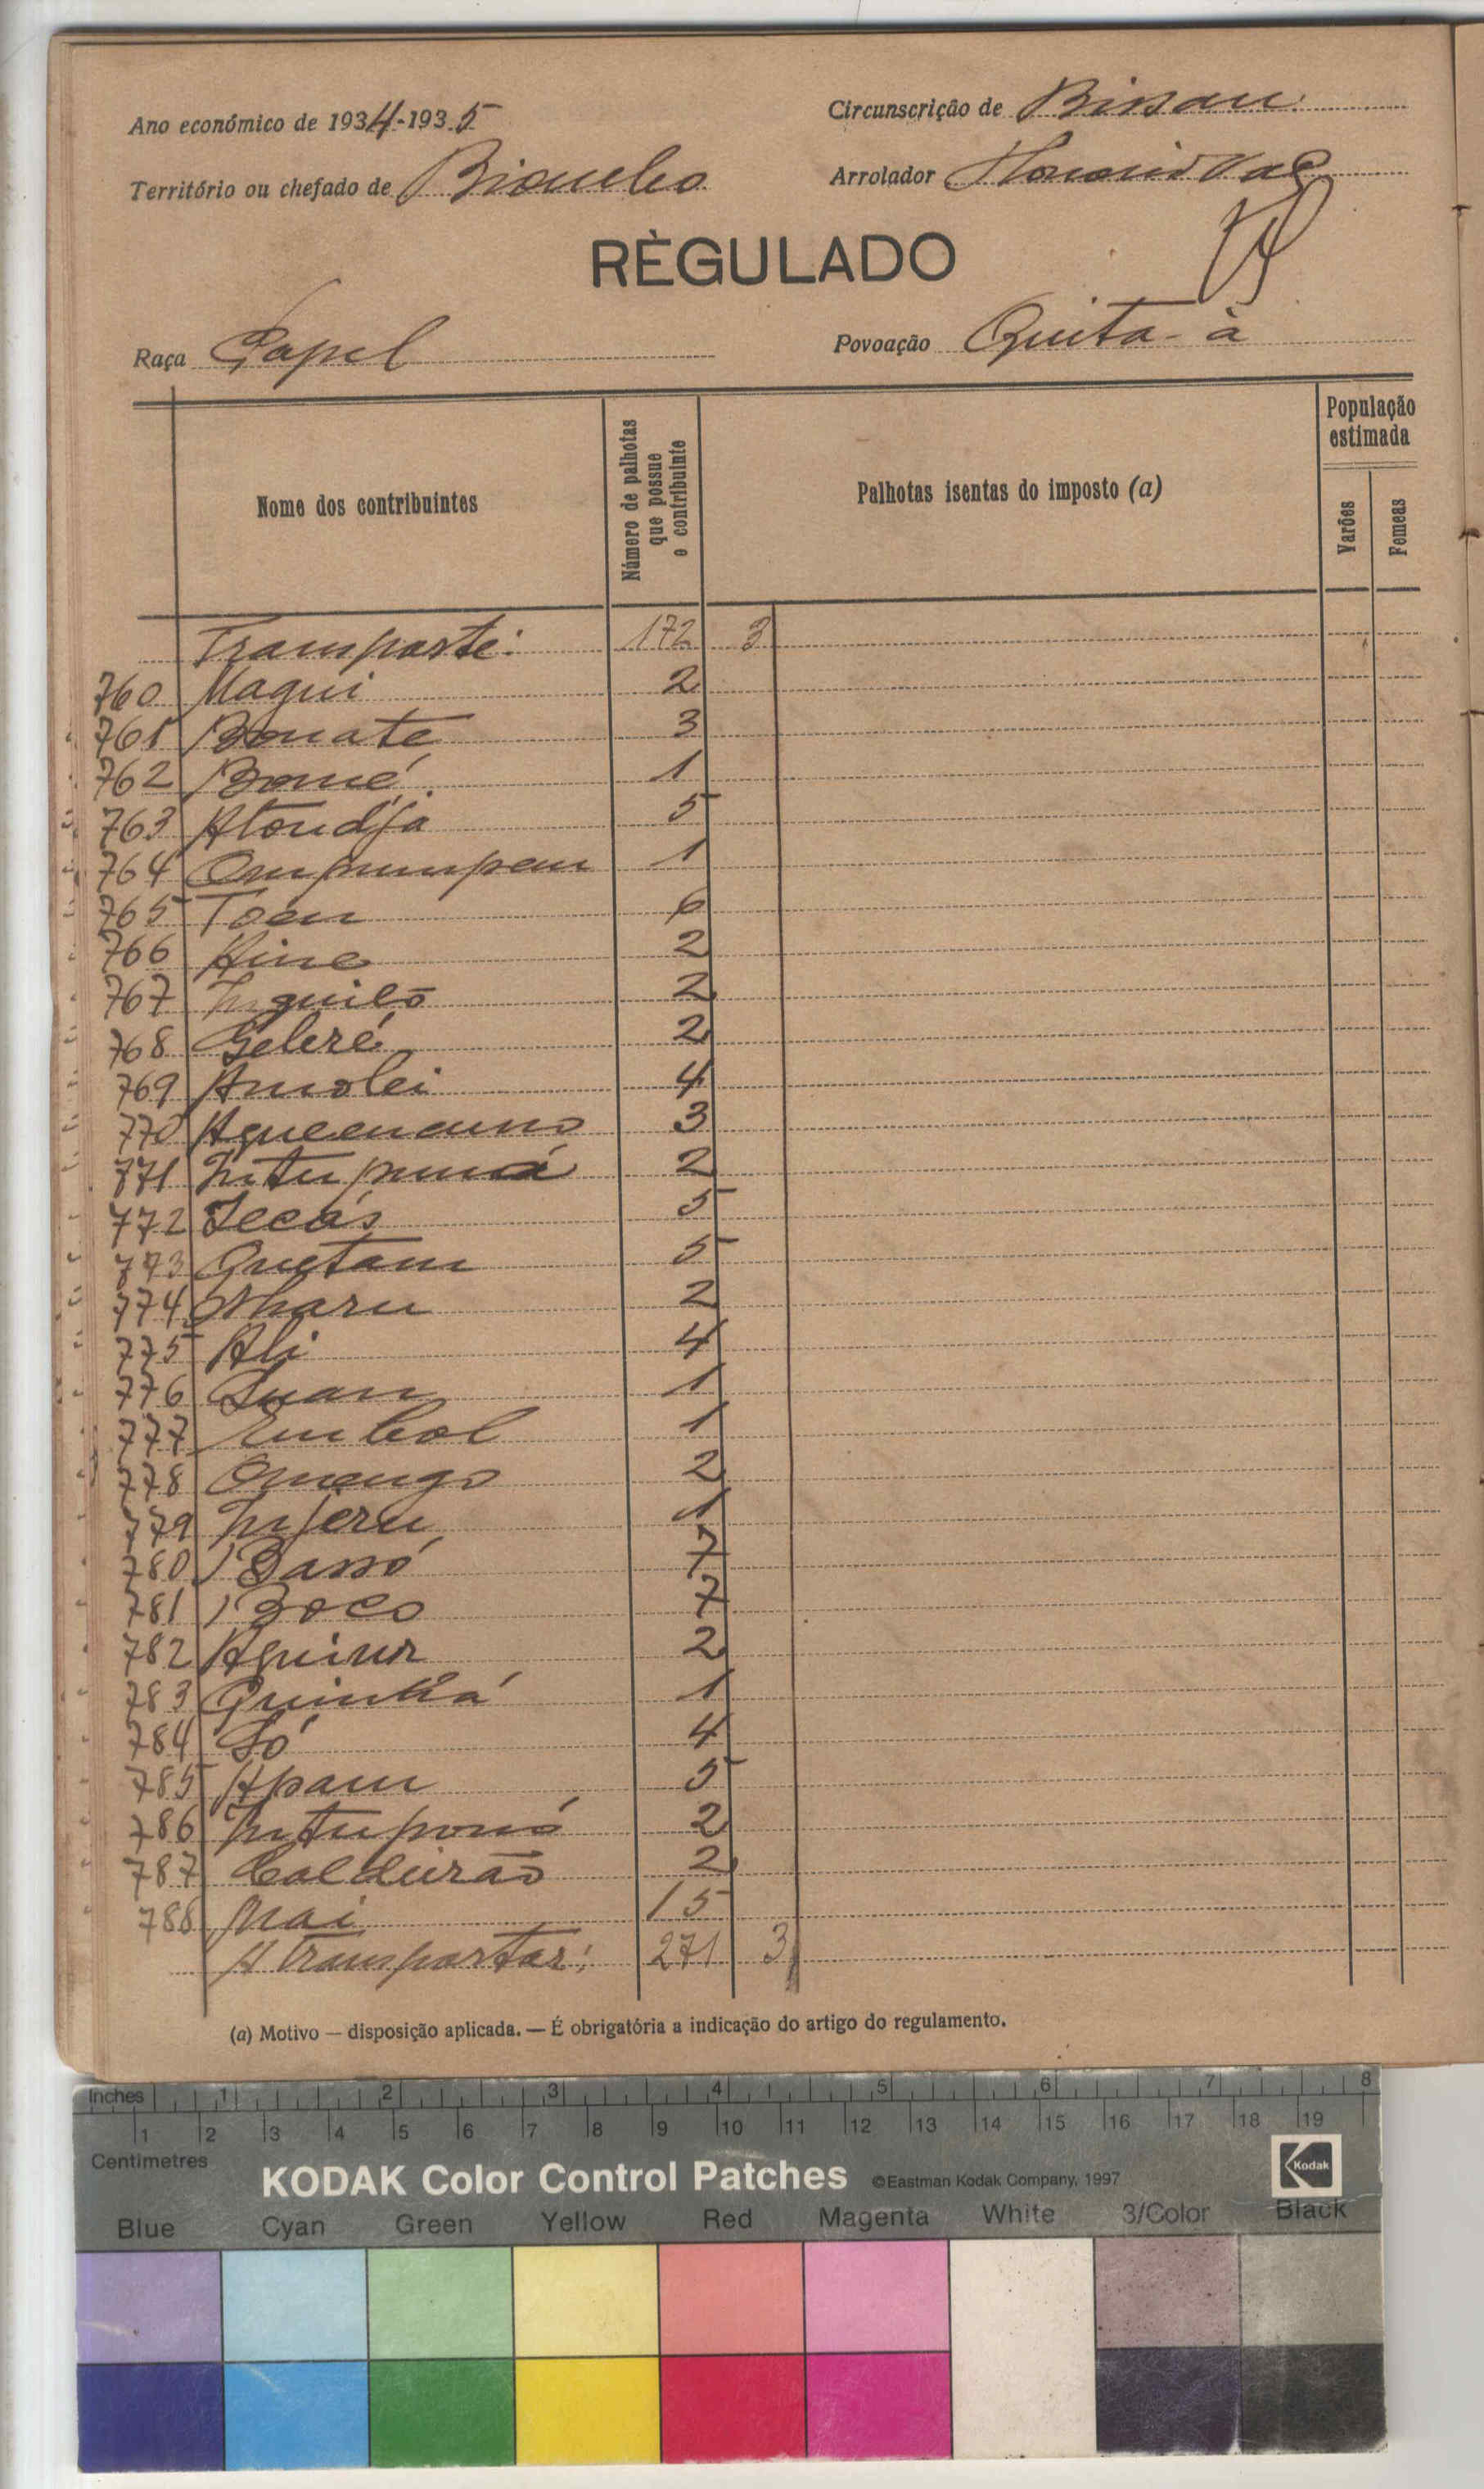 Ano económico de 1934-1935
Circunscrição de Bissau
Território ou chefado de Biombo
Arrolador Honorio Vaz
RÈGULADO
Raça Papel
Povoação Quita-à
Nome dos contribuintes
Número de palhotas que possue o contribuinte
Palhotas isentas do imposto (a)
População estimada
Varões
Femeas
Transporte: 172 3
760 Maqui 2
761 Bonate 3
762 Bomé 1
763 Atoudja 5
764 1
765 Toem 6
766 Aine 2
767 2
768 2
769 Amolei 4
770 3
771 2
772 Tecás 5
773 Quetam 5
774 Nharu 2
775 Ali 4
776 1
777 Embol 1
778 Omengo 2
779 1
780 Bassó 7
781 Boco 7
782 2
783 Quinhá 1
784 Só 4
785 Apam 5
786 2
787 Caldeirão 2
788 Nai 15
A transportar: 271 3
(a) Motivo — disposição aplicada. — É obrigatória a indicação do artigo do regulamento.
Inches 1 2 3 4 5 6 7 8
1 2 3 4 5 6 7 8 9 10 11 12 13 14 15 16 17 18 19
Centimetres
KODAK Color Control Patches ©Eastman Kodak Company, 1997 Kodak
Blue Cyan Green Yellow Red Magenta White 3/Color Black